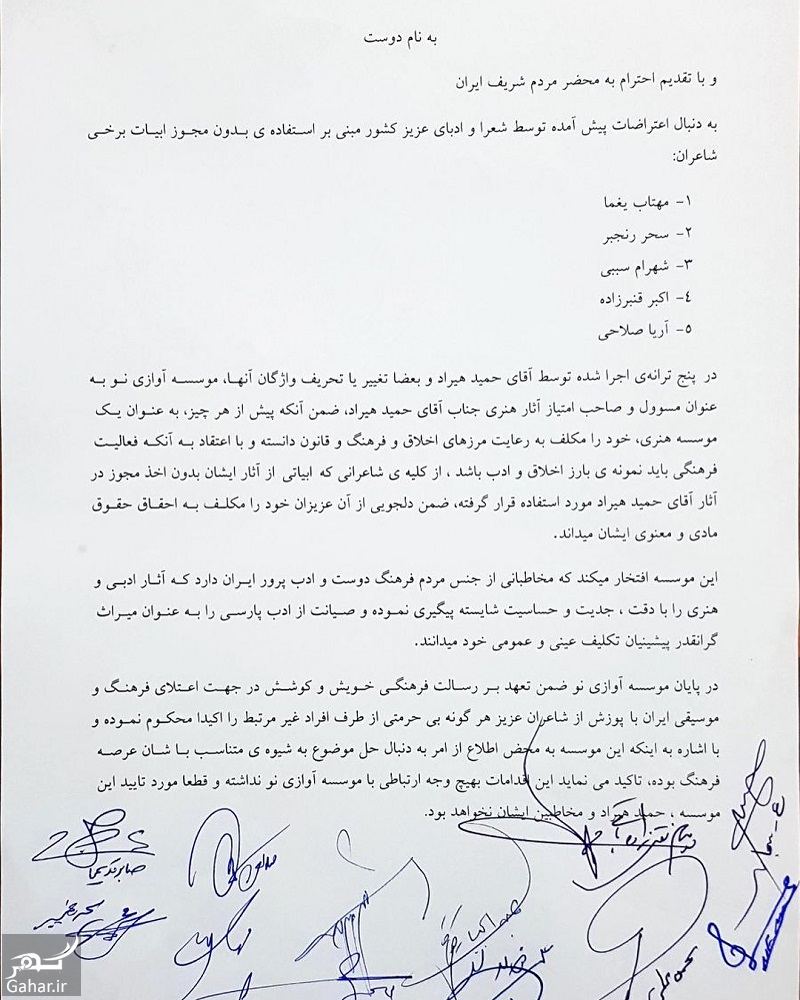 به نام دوست
و با تقدیم احترام به محضر مردم شریف ایران
به دنبال اعتراضات پیش آمده توسط شعرا و ادبای عزیز کشور مبنی بر استفاده ی بدون مجوز ابیات برخی
شاعران:
۱- مهتاب یغما
۲- سحر رنجبر
۳- شهرام سببی
٤- اکبر قنبرزاده
٥- آریا صلاحی
در پنج ترانه‌ی اجرا شده توسط آقای حمید هیراد و بعضا تغییر یا تحریف واژگان آنها، موسسه آوازی نو به
عنوان مسوول و صاحب امتیاز آثار هنری جناب آقای حمید هیراد، ضمن آنکه پیش از هر چیز، به عنوان یک
موسسه هنری، خود را مکلف به رعایت مرزهای اخلاق و فرهنگ و قانون دانسته و با اعتقاد به آنکه فعالیت
فرهنگی باید نمونه ی بارز اخلاق و ادب باشد ، از کلیه ی شاعرانی که ابیاتی از آثار ایشان بدون اخذ مجوز در
آثار آقای حمید هیراد مورد استفاده قرار گرفته، ضمن دلجویی از آن عزیزان خود را مکلف به احقاق حقوق
مادی و معنوی ایشان میداند.
این موسسه افتخار میکند که مخاطبانی از جنس مردم فرهنگ دوست و ادب پرور ایران دارد که آثار ادبی و
هنری را با دقت ، جدیت و حساسیت شایسته پیگیری نموده و صیانت از ادب پارسی را به عنوان میراث
گرانقدر پیشینیان تکلیف عینی و عمومی خود میدانند.
در پایان موسسه آوازی نو ضمن تعهد بر رسالت فرهنگی خویش و کوشش در جهت اعتلای فرهنگ و
موسیقی ایران با پوزش از شاعران عزیز هر گونه بی حرمتی از طرف افراد غیر مرتبط را اکیدا محکوم نموده و
با اشاره به اینکه این موسسه به محض اطلاع از امر به دنبال حل موضوع به شیوه ی متناسب با شان عرصه
فرهنگ بوده، تاکید می نماید این اقدامات بهیچ وجه ارتباطی با موسسه آوازی نو نداشته و قطعا مورد تایید این
موسسه ، حمید هیراد و مخاطبین ایشان نخواهد بود.
صابر قدیمی
سحر رنجبر
گهر
Gahar.ir